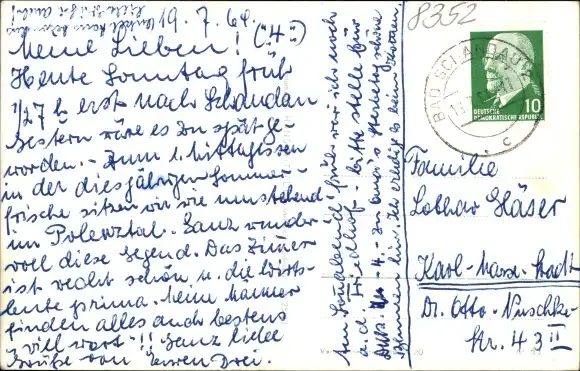 8352
19. 7. 64.
Meine Lieben! (4)
Heute Sonntag früh
1/2 7 h erst nach Schandau
gestern wäre es zu spät ge
worden. - Zum 1. Mittagessen
in der diesjährigen Sommer-
frische sitzen wir wie umstehend
im Polenztal. Ganz wunder
voll diese Gegend. Das Zimmer
ist recht schön u. die Wirts-
leute prima. Meine Männer
finden alles auch bestens
viel wert!! Ganz liebe
Grüße von Euren Drei.
Am Sonnabend früh war ich noch
a. d. Friedhof - bitte stelle für
DM. 4.- zu Oma's Herbstschöne
Blumen hin. Ich erledige es beim
BAD SCHANDAU
c
DEUTSCHE
DEMOKRATISCHE REPUBLIK
10
Familie
Lothar Gläser
Karl-Marx-Stadt
Dr. Otto-Nuschke-
Str. 43 II